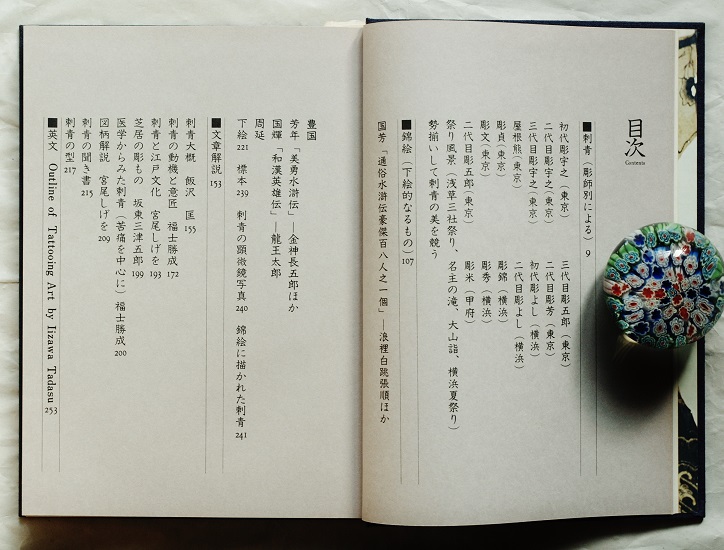 目次
Contents
■刺青（彫師別による）9
初代彫宇之（東京）　三代目彫五郎（東京）
二代目彫宇之（東京）　二代目彫芳（東京）
三代目彫宇之（東京）　初代彫よし（横浜）
屋根熊（東京）　二代目彫よし（横浜）
彫貞（東京）　彫錦（横浜）
彫文（東京）　彫秀（横浜）
二代目彫五郎（東京）　彫米（甲府）
祭り風景（浅草三社祭り、名主の滝、大山詣、横浜夏祭り）
勢揃いして刺青の美を競う
■錦絵（下絵的なるもの）107
国芳「通俗水滸伝豪傑百八人之一個」―浪裡白跳張順ほか
豊国
芳年「美勇水滸伝」―金神長五郎ほか
国輝「和漢英雄伝」―龍王太郎
周延
下絵 221　標本 239　刺青の顕微鏡写真 240　錦絵に描かれた刺青 241
■文章解説 153
刺青大概　飯沢　匡 155
刺青の動機と意匠　福士勝成 172
刺青と江戸文化　宮尾しげを 193
芝居の彫もの　坂東三津五郎 199
医学からみた刺青（苦痛を中心に）福士勝成 200
図柄解説　宮尾しげを 209
刺青の聞き書 215
刺青の型 217
■英文　Outline of Tattooing Art by Iizawa Tadasu 253